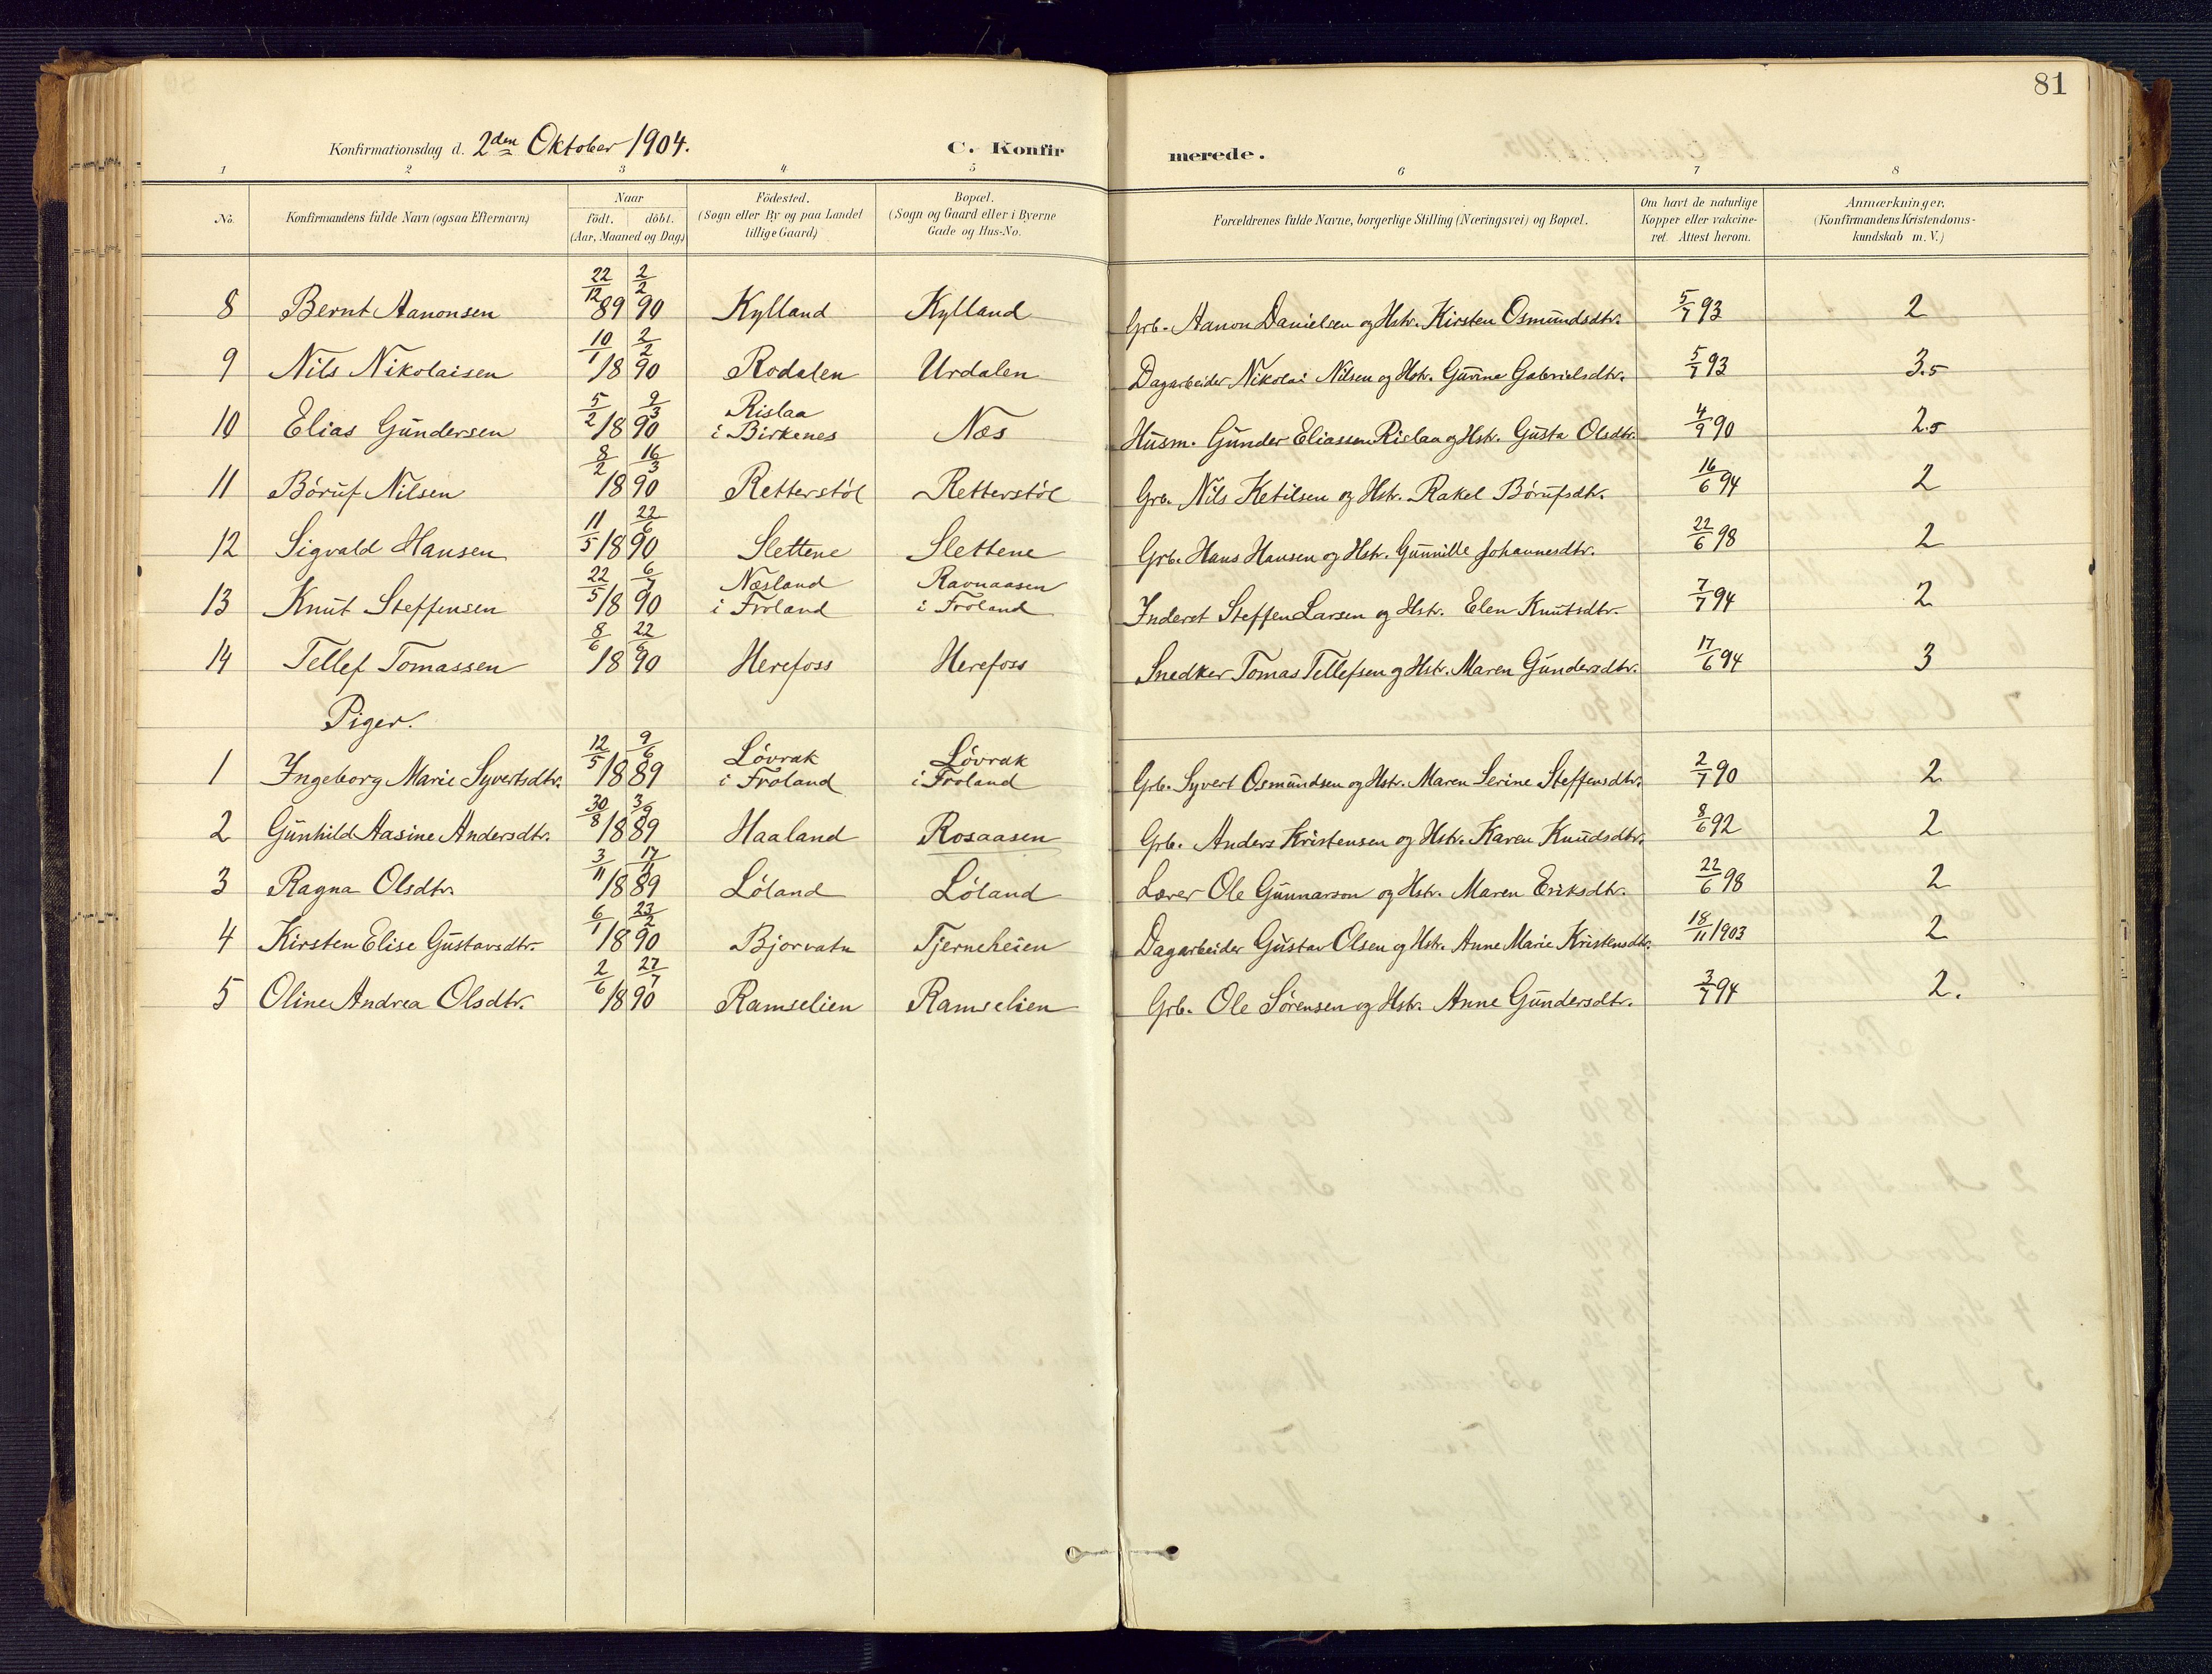 81
Konfirmationsdag d. 2den Oktober 1904. C. Konfirmerede.
1 2 3 4 5 6 7 8
No. Konfirmandens fulde Navn (ogsaa Efternavn) Naar födt. döbt. (Aar, Maaned og Dag.) Födested. (Sogn eller By og paa Landet tillige Gaard) Bopæl. (Sogn og Gaard eller i Byerne Gade og Hus-No. Forældrenes fulde Navne, borgerlige Stilling (Næringsvei) og Bopæl. Om havt de naturlige Kopper eller vakcineret. Attest herom. Anmærkninger. (Konfirmandens Kristendomskundskab m. V.)
8 Bernt Aanonsen 22/12 89 2/2 90 Kylland Kylland Grb. Aanon Danielsen og Hstr. Kirsten Osmundsdtr. 5/7 93 2
9 Nils Nikolaisen 10/1 18 2/2 90 Rodalen Urdalen Dagarbeider Nikolai Nilsen og Hstr. Gunne Gabrielsdtr. 5/7 93 3.5
10 Elias Gundersen 5/2 18 9/3 90 Rislaa i Birkenes Næs Husm. Gunder Eliassen Rislaa og Hstr. Gusta Olsdtr. 4/9 90 2.5
11 Börúf Nilsen 8/2 18 16/3 90 Retterstöl Retterstöl Grb. Nils Ketilsen og Hstr. Rakel Börufsdtr. 16/6 94 2
12 Sigvald Hansen 11/5 18 22/6 90 Slettene Slettene Grb. Hans Hansen og Hstr. Gunnille Johannesdtr. 22/6 98 2
13 Knut Steffensen 22/5 18 6/7 90 Næsland i Froland Ravnaasen i Froland Inderst Steffen Larsen og Hstr. Elen Knutsdtr. 7/7 94 2
14 Tellef Tomassen 8/6 18 22/6 90 Herefoss Herefoss Snedker Tomas Tellefsen og Hstr. Maren Gundersdtr. 17/6 94 3
Piger.
1 Ingeborg Marie Syvertsdtr. 12/5 18 9/6 89 Lövrak i Froland Lövrak i Froland Grb. Syvert Osmundsen og Hstr. Maren Serine Steffensdtr. 2/7 90 2
2 Gunhild Aasine Andersdtr. 30/8 18 3/9 89 Haaland Rosaasen Grb. Anders Kristensen og Hstr. Karen Knudsdtr. 8/6 92 2
3 Ragna Olsdtr. 3/11 18 17/11 89 Löland Löland Lærer Ole Gunnarson og Hstr. Maren Eriksdtr. 22/6 98 2
4 Kirsten Elise Gustavsdtr. 6/1 18 23/2 90 Bjorvatn Tjerneheien Dagarbeider Gustav Olsen og Hstr. Anne Marie Kristensdtr. 18/11 1903 2
5 Oline Andrea Olsdtr. 2/6 18 27/7 90 Ramselien Ramselien Grb. Ole Sörensen og Hstr. Anne Gundersdtr. 3/7 94 2.